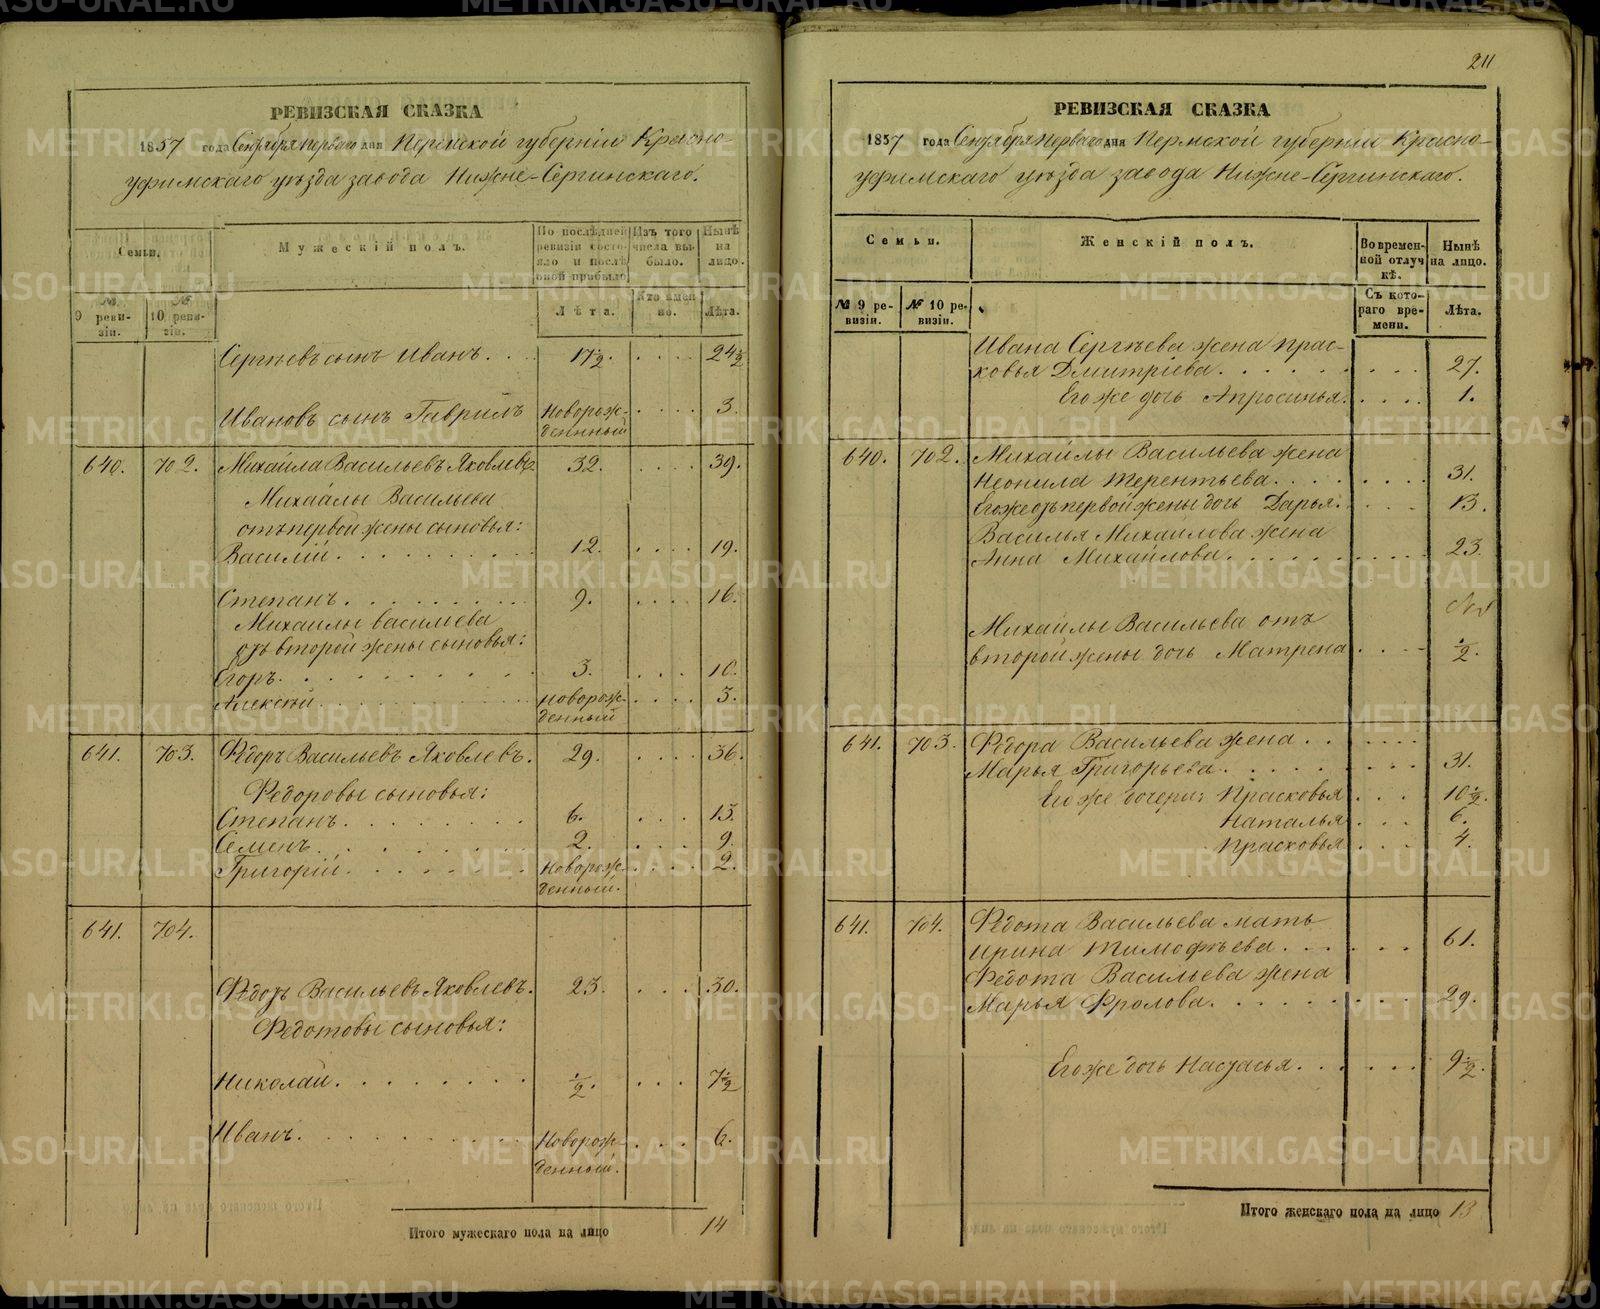 РЕВИЗСКАЯ СКАЗКА
1857 года Сентября перваго дня Пермской губерніи Красно-
уфимскаго уѣзда завода Нижне-Сергинскаго.
Семьи.
Мужескій полъ.
По послѣдней ревизіи состояло и послѣ оной прибыло
Изъ того числа выбыло.
Нынѣ на лицо.
№ 9 ревизіи.
№ 10 ревизіи.
Лѣта.
Кто именно.
Лѣта.
Сергѣевъ сынъ Иванъ. 17½. 24½
Ивановъ сынъ Гаврилъ Новорожденный 3.
640. 702. Михайла Васильевъ Яковлевъ 32. 39.
Михайлы Васильева
отъ первой жены сыновья:
Василій. 12. 19.
Степанъ. 9. 16.
Михайлы Васильева
отъ второй жены сыновья:
Егоръ. 3. 10.
Алексѣй. Новорожденный 3.
641. 703. Федоръ Васильевъ Яковлевъ. 29. 36.
Федоровы сыновья:
Степанъ. 6. 13.
Семенъ. 2. 9.
Григорій. Новорожденный. 2.
641. 704.
Федотъ Васильевъ Яковлевъ. 23. 30.
Федотовы сыновья:
Николай. ½. 7½
Иванъ. Новорожденный. 6.
Итого мужескаго пола на лицо 14
211
РЕВИЗСКАЯ СКАЗКА
1857 года Сентября перваго дня Пермской губерніи Красно-
уфимскаго уѣзда завода Нижне-Сергинскаго.
Семьи.
Женскій полъ.
Во временной отлучкѣ.
Нынѣ на лицо.
№ 9 ревизіи.
№ 10 ревизіи.
Съ котораго времени.
Лѣта.
Ивана Сергѣева жена Прас-
ковья Дмитріева. 27.
Его же дочь Апросинья. 1.
640. 702. Михайлы Васильева жена
Неонила Терентьева. 31.
Его же отъ первой жены дочь Дарья. 13.
Василья Михайлова жена
Анна Михайлова. 23.
Михайлы Васильева отъ
второй жены дочь Матрена ½.
641. 703. Федора Васильева жена
Марья Григорьева. 31.
Его же дочери: Прасковья 10½.
Наталья 6.
Прасковья 4.
641. 704. Федота Васильева мать
Ирина Тимофѣева. 61.
Федота Васильева жена
Марья Фролова. 29.
Его же дочь Настасья. 9½.
Итого женскаго пола на лицо 13
METRIKI.GASO-URAL.RU